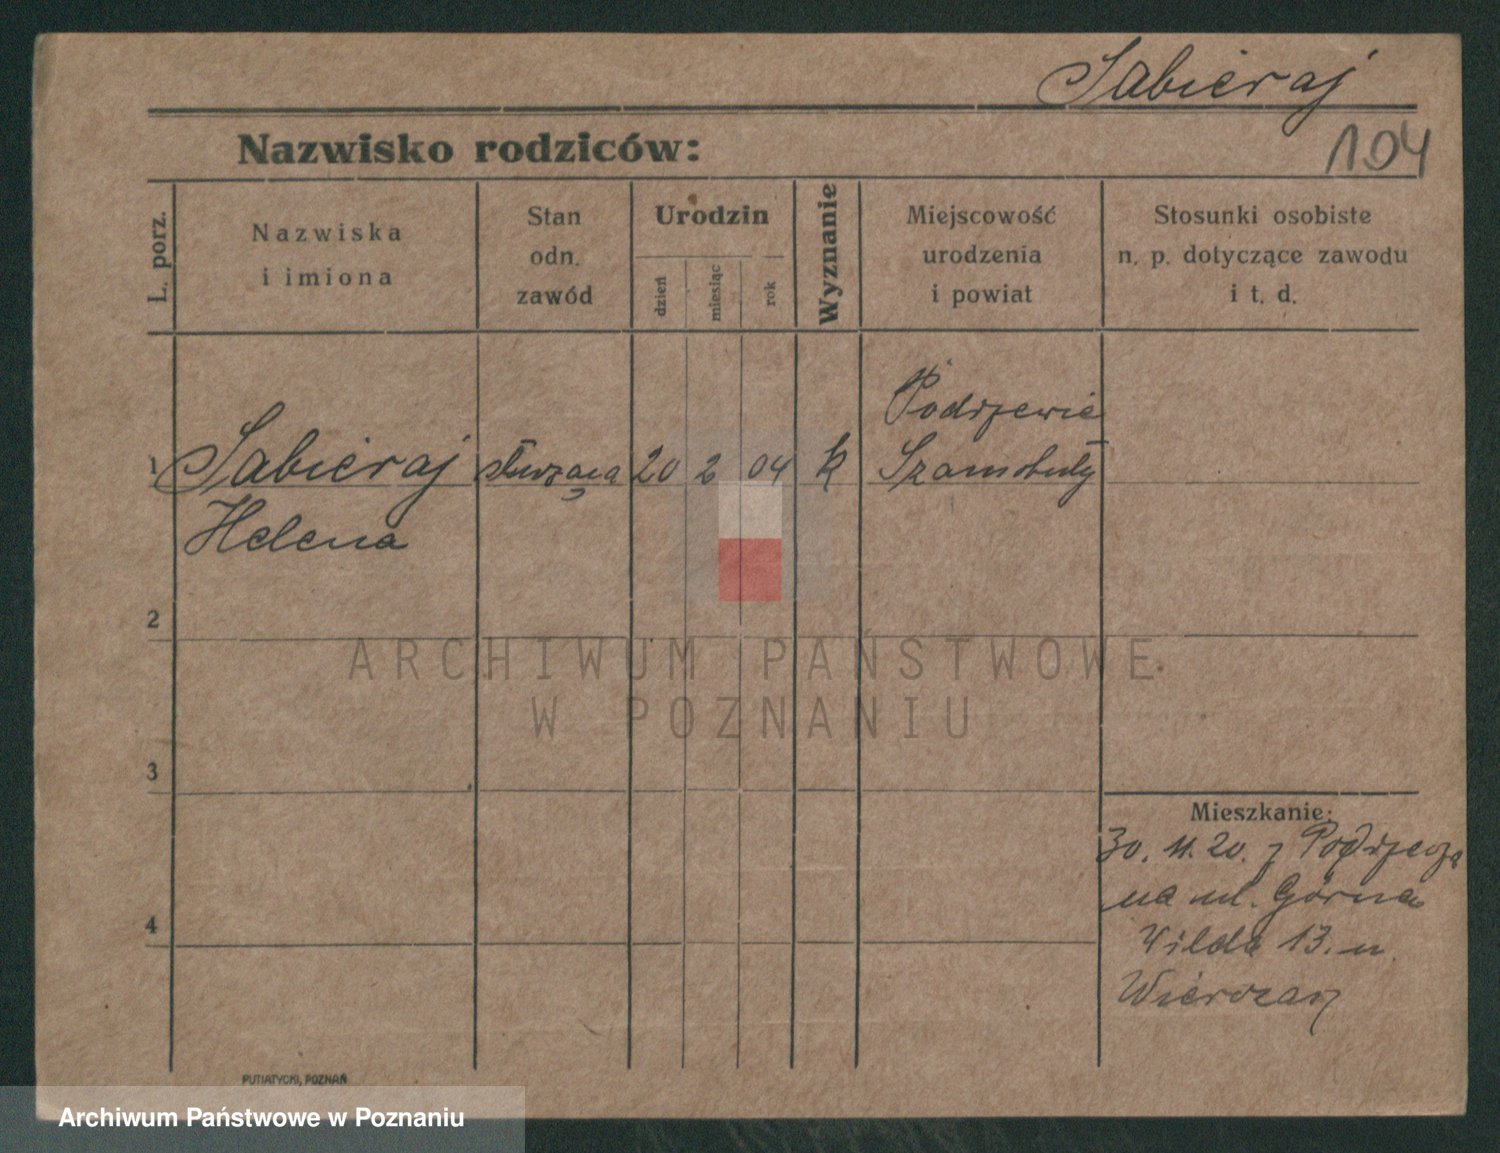 Sabieraj
Nazwisko rodziców:
104
L. porz.
Nazwiska
i imiona
Stan
odn.
zawód
Urodzin
dzień
miesiąc
rok
Wyznanie
Miejscowość
urodzenia
i powiat
Stosunki osobiste
n. p. dotyczące zawodu
i t. d.
1
Sabieraj
Helena
służąca
20
2
04
k
Podrzewie
Szamotuły
2
3
4
Mieszkanie:
30. 11. 20. z
na ul. Górna
Wilda 13. u
ARCHIWUM PAŃSTWOWE
W POZNANIU
PUTIATYCKI, POZNAŃ
Archiwum Państwowe w Poznaniu